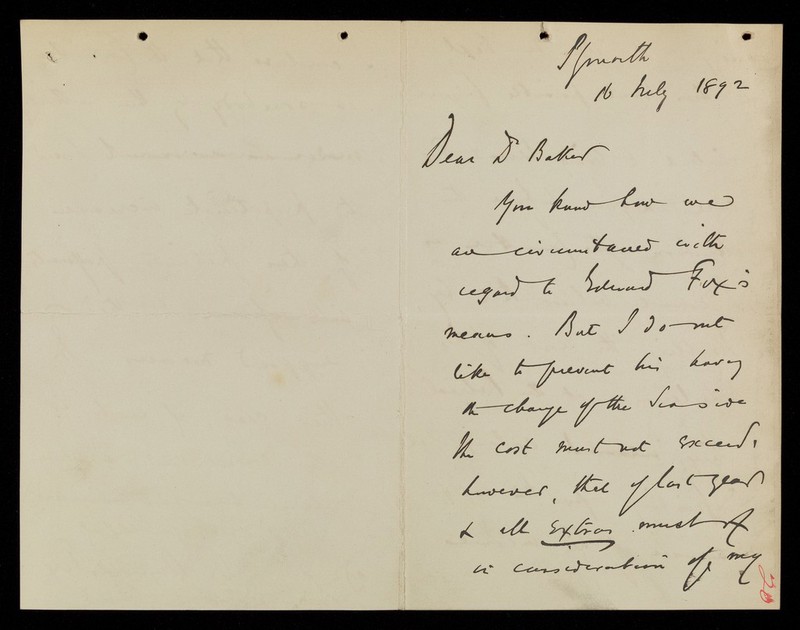 Plymouth
16 July 1892
Dear Dr Baker
You know how we
are circumstanced with
regard to Edward Fox's
means. But I do not
like to prevent his having
the change of the Sea side
the cost must not exceed,
however, that of last year
& all extras must
in consideration of my